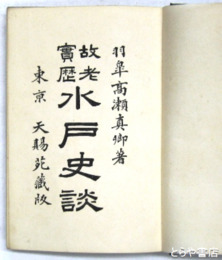 羽皐高瀬真卿著
故老
實歴
水戸史談
東京 天賜苑藏版
とらや書店